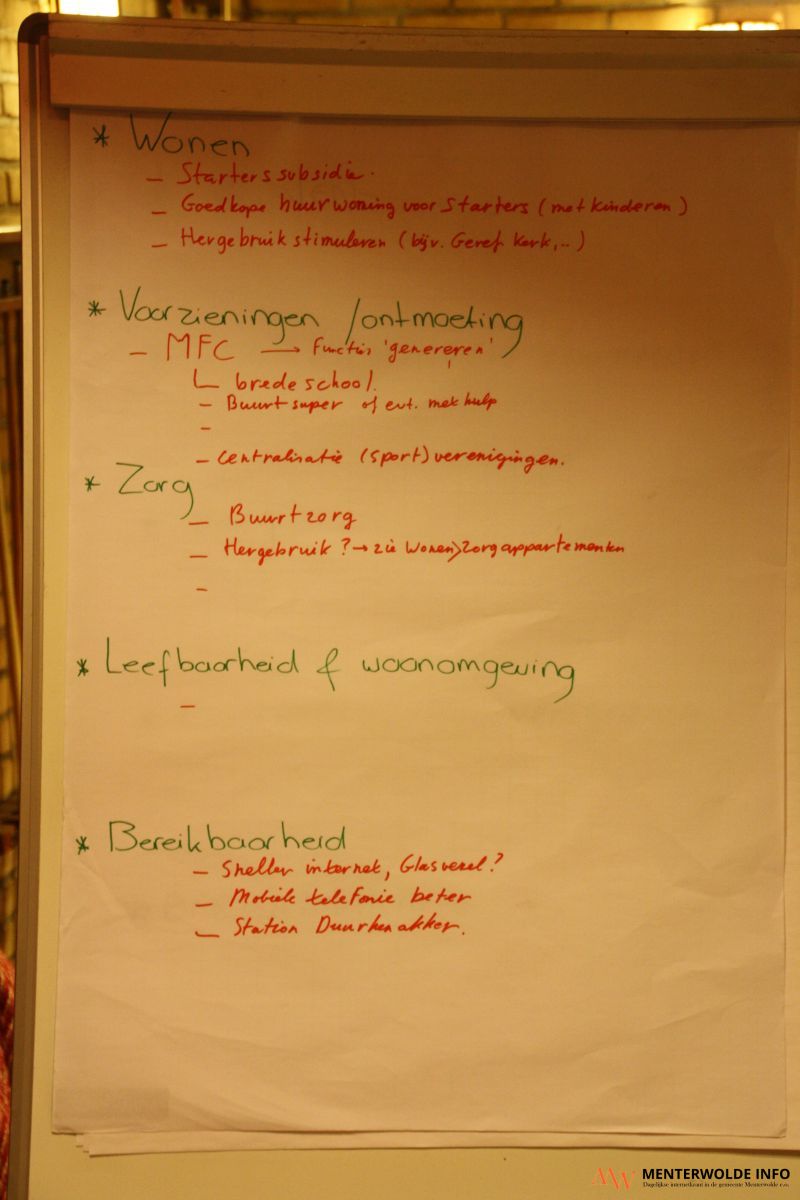 * Wonen
- Starters subsidie.
- Goedkope huurwoning voor starters (met kinderen)
- Hergebruik stimuleren (bijv. Geref. Kerk,..)
* Voorzieningen /ontmoeting
- MFC → functies 'genereren'
brede school.
- Buurtsuper of evt. met hulp
-
- Centralisatie (sport) verenigingen.
* Zorg
- Buurtzorg
- Hergebruik ? → zie Wonen > Zorgappartementen
-
* Leefbaarheid & woonomgeving
-
* Bereikbaarheid
- Sneller internet, Glasvezel?
- Mobiele telefonie beter
- Station Duurkenakker.
MW MENTERWOLDE INFO
Dagelijkse internetkrant in de gemeente Menterwolde e.o.